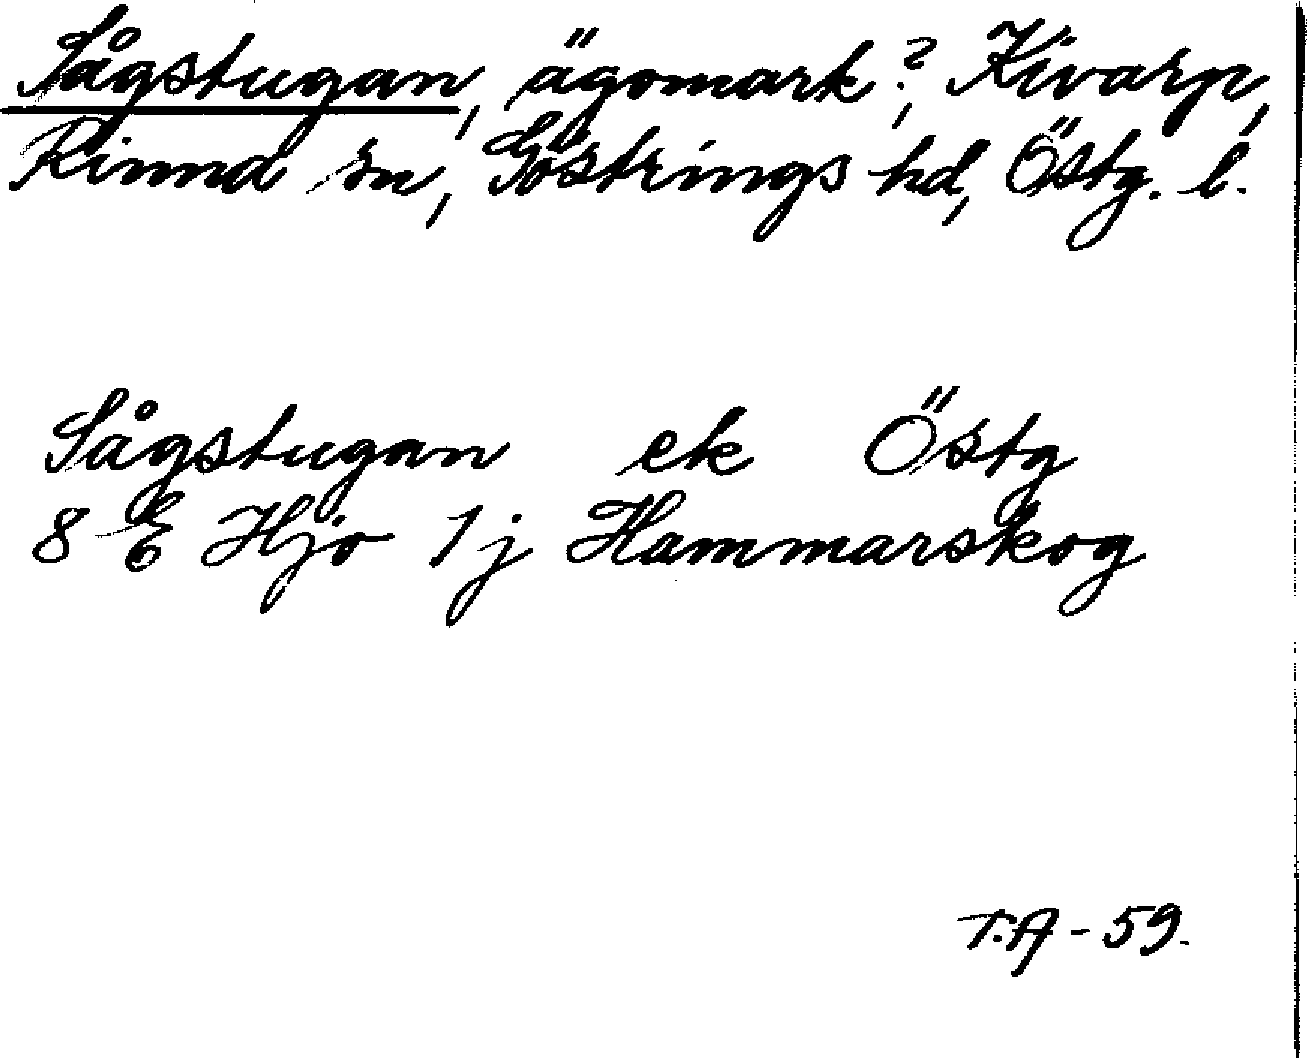 Sågstugan, ägomark?, Kivarp,
Rinna sn, Göstrings hd, Östg. l.
Sågstugan ek Östg
8 E Hjo 1j Hammarskog
T.A - 59.